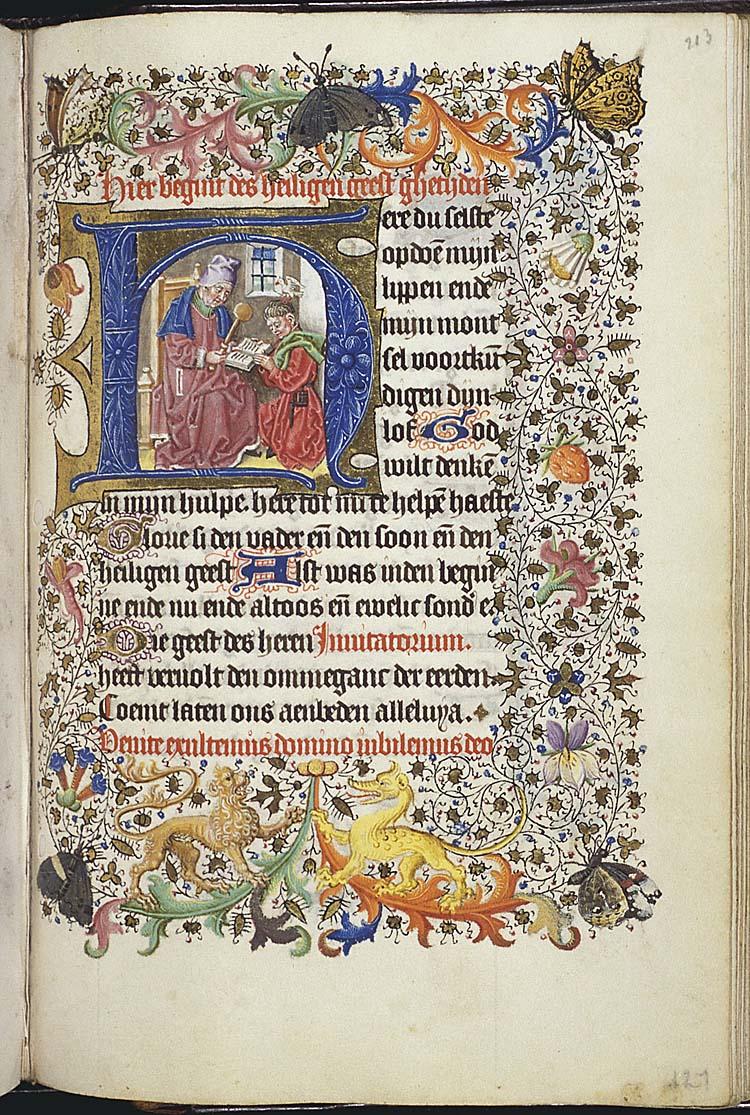 213
Hier begint des heiligen geest ghetyden
Here du selste
opdoē mijn
lippen ende
mijn mont
sel voortkū
digen dijn
lof God
wilt denkē
in mijn hulpe. here tot mi te helpē haeste
Gloue si den vader eñ den soon eñ den
heiligen geest Alst was inden begin
ne ende nu ende altoos eñ ewelic sond e.
Die geest des heren Inuitatorium.
heeft veruolt den ommeganc der eerden.
Coemt laten ons aenbeden alleluya.
Venite exultemus domino iubilemus deo
121